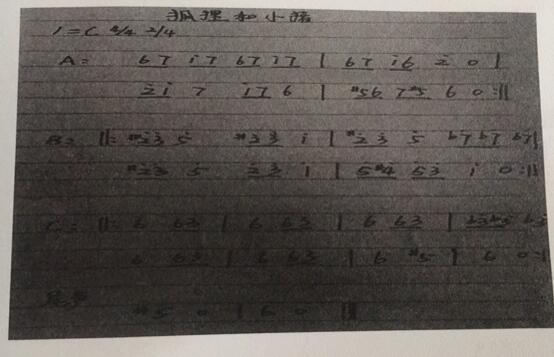 狐狸和小孩
1=C 4/4 2/4
A= 67 i7 67 i7 | 67 i6 2̇ 0 |
2̇i 7 i7 6 | #56 7#5 6 0 :||
B= ||: #2̇3̇ 5̇ #2̇3̇ i | #2̇3̇ 5̇ b7 b7 b7 |
#2̇3̇ 5̇ 2̇3̇ i | 5̇#4̇ 5̇3̇ i 0 :||
C= ||: 6 63 | 6 63 | 6 63 |
6 63 | 6 63 | 6 #5 | 6 0 :||
#5 0 | 6 0 ||